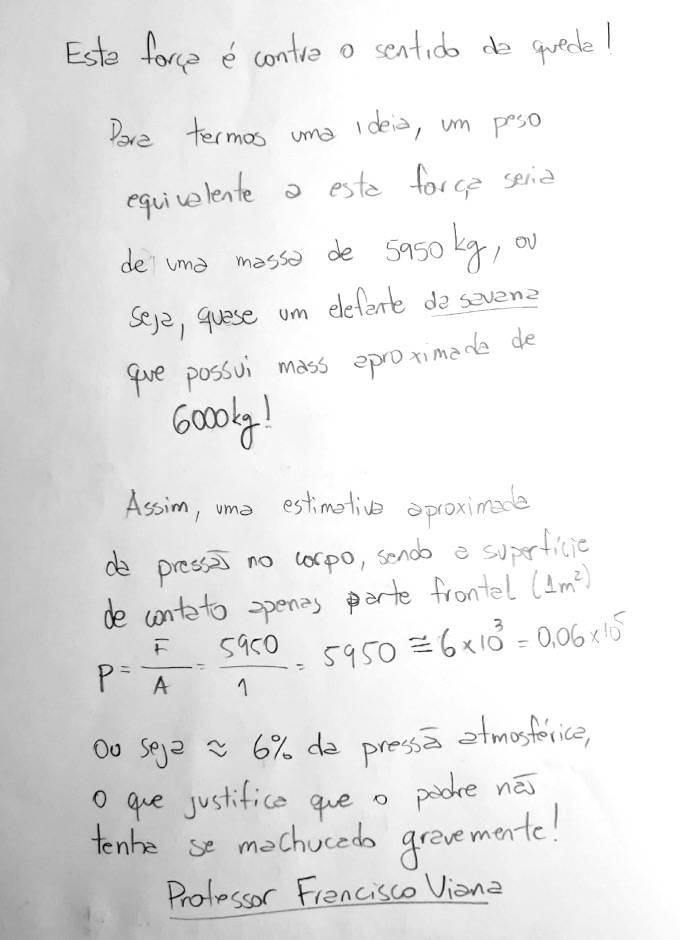 Esta força é contra o sentido da queda!
Para termos uma ideia, um peso
equivalente a esta força seria
de uma massa de 5950 kg, ou
seja, quase um elefante da savana
que possui mass aproximada de
6000kg!
Assim, uma estimativa aproximada
da pressão no corpo, sendo a superfície
de contato apenas parte frontal (1m²)
P = F/A = 5950/1 = 5950 ≅ 6×10³ = 0,06×10⁵
Ou seja ≈ 6% da pressão atmosférica,
o que justifica que o padre não
tenha se machucado gravemente!
Professor Francisco Viana